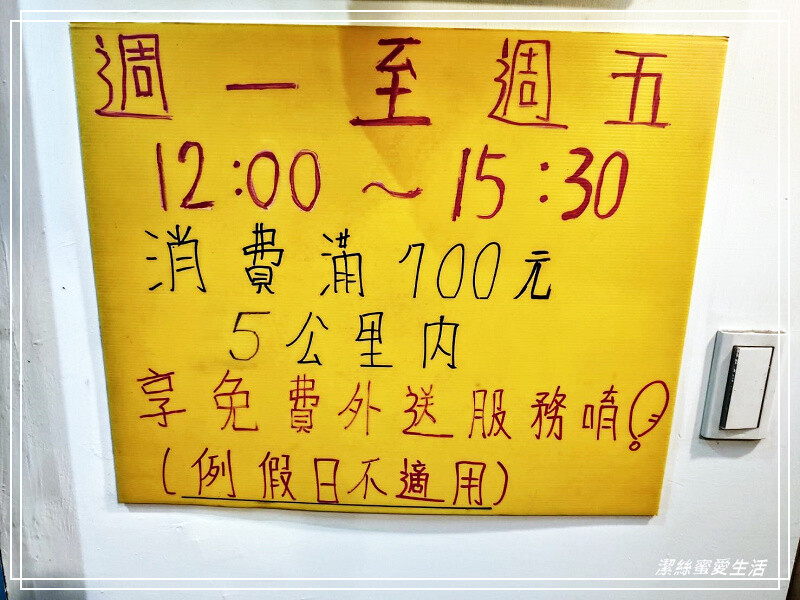 週一至週五
12:00～15:30
消費滿700元
5公里內
享免費外送服務唷!
(例假日不適用)
潔絲蜜愛生活